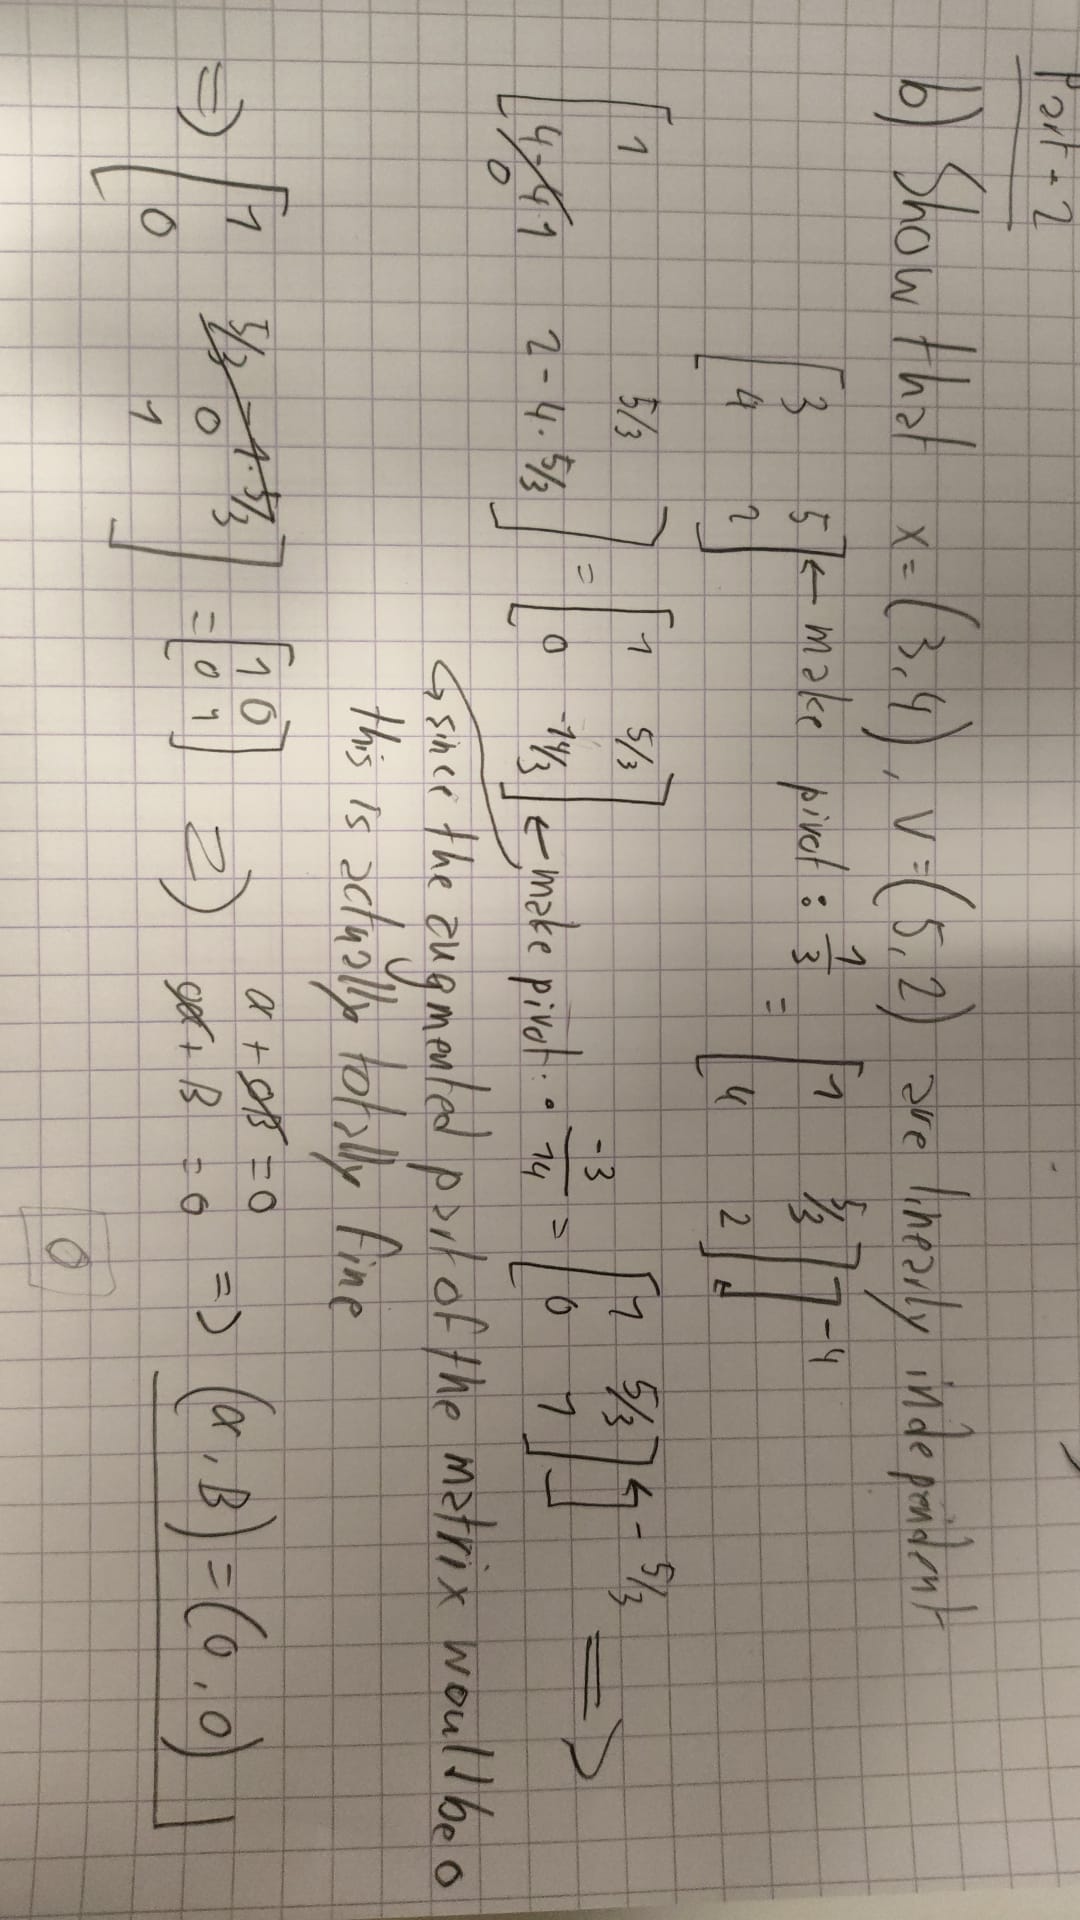 Part - 2
b) Show that x=(3,4), v=(5,2) are linearly independent
[3 5
4 2] ← make pivot : 1/3 = [1 5/3
4 2] -4
[1 5/3
4-4·1 0 2-4·5/3] = [1 5/3
0 -14/3] ← make pivot: · -3/14 = [1 5/3
0 1] - 5/3 ⟹
↳ since the augmented part of the matrix would be 0
this is actually totally fine
=> [1 5/3-1·5/3 0
0 1] = [1 0
0 1] 2) α + 0β = 0
0α + β = 0 => (α, β) = (0, 0)
0